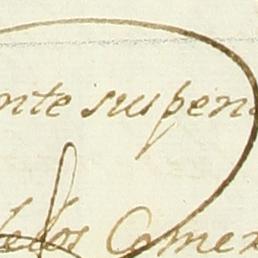 nte suspen
delos Comer